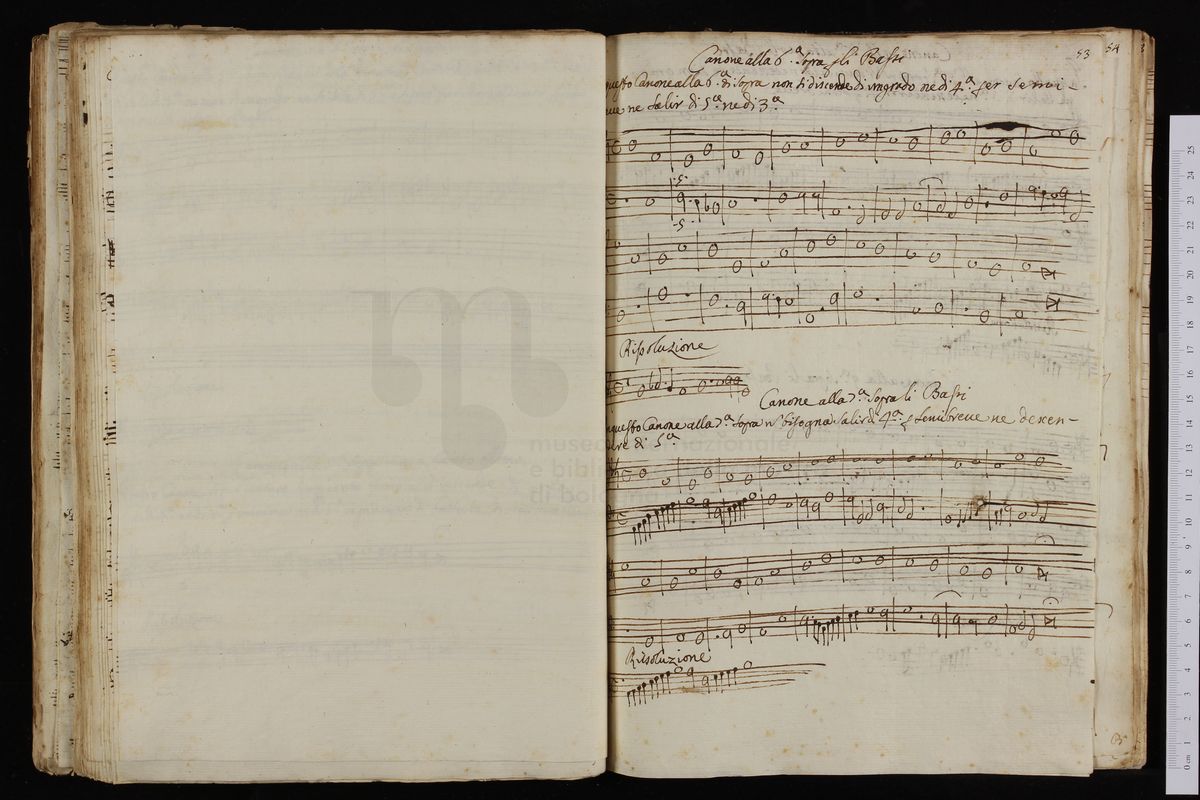 53 54
Canone alla 6.ª sopra gli Bassi
questo Canone alla 6.ª di sopra non si discende di un grado ne di 4.ª per semi-
eve ne salir di 5.ª ne di 3.ª
Rissoluzione
Canone alla 7.ª sopra li Bassi
questo Canone alla 7.ª sopra nō bisogna salir di 4.ª p semibreve ne decen-
dere di 5.ª
museo internazionale
e biblioteca
di bologna
Rissoluzione
0 cm 1 2 3 4 5 6 7 8 9 10 11 12 13 14 15 16 17 18 19 20 21 22 23 24 25